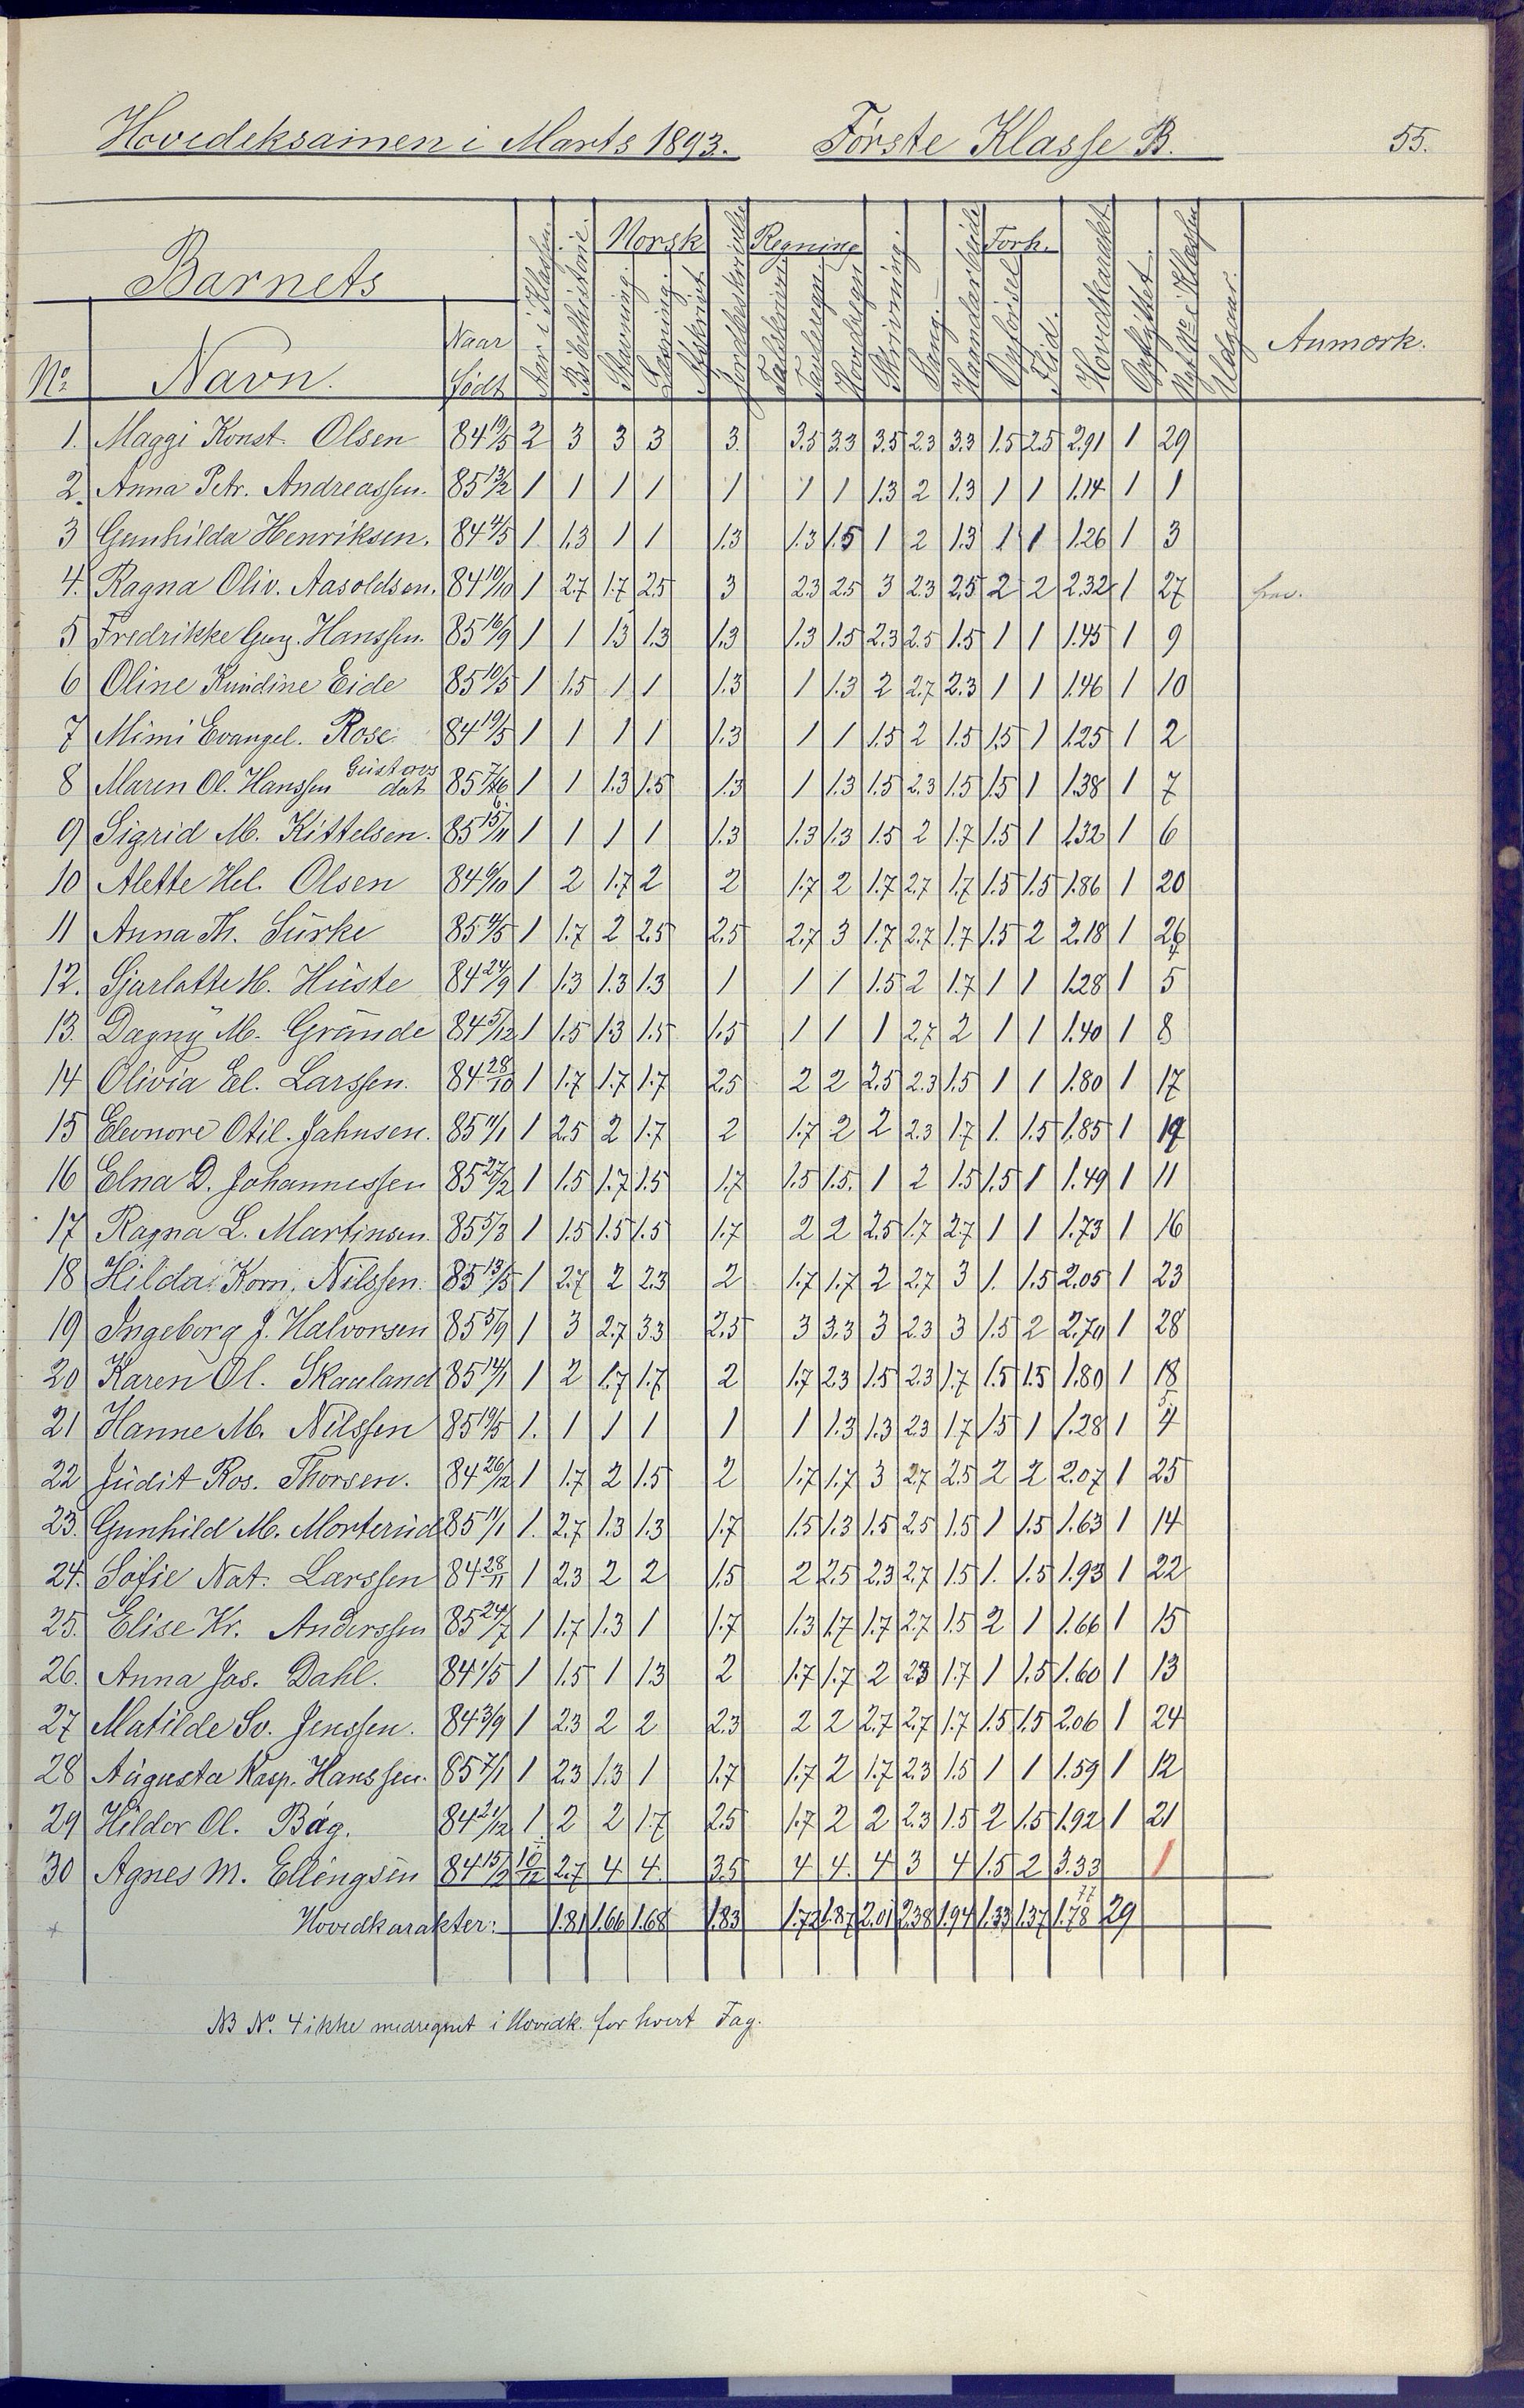 Hovedeksamen i Marts 1893. Første Klasse B. 55.
Barnets Norsk Regning Forh.
No Navn. Naar Født Aar i Klassen. Bibelhistorie. Stavning. Læsning. Afskrivt. Jordbeskrivelse Talskrivn. Tavleregn. Hovedregn. Skrivning. Sang. Haandarbeide Opførsel Flid. Hovedkarakt. Opflyttet. Nyt No i Klassen Udgaar. Anmærk.
1. Maggi Konst. Olsen 84 19/5 2 3 3 3 3. 3.5 3.3 3.5 2.3 3.3 1.5 2.5 2.91 1 29
2. Anna Petr. Andreassen. 85 13/2 1 1 1 1 1 1 1 1.3 2 1.3 1 1 1.14 1 1
3 Gunhilda Henriksen. 84 4/5 1 1.3 1 1 1.3 1.3 1.5 1 2 1.3 1 1 1.26 1 3
4. Ragna Oliv. Aasoldsen. 84 10/10 1 2.7 1.7 2.5 3 2.3 2.5 3 2.3 2.5 2 2 2.32 1 27 frav.
5 Fredrikke Hanssen. 85 16/9 1 1 1.3 1.3 1.3 1.3 1.5 2.3 2.5 1.5 1 1 1.45 1 9
6 Oline Kundine Eide 85 10/5 1 1.5 1 1 1.3 1 1.3 2 2.7 2.3 1 1 1.46 1 10
7 Mimi Evangel. Rose 84 19/5 1 1 1 1 1.3 1 1 1.5 2 1.5 1.5 1 1.25 1 2
8 Maren Ol. Hanssen Gustavsdat 85 1 1 1.3 1.5 1.3 1 1.3 1.5 2.3 1.5 1.5 1 1.38 1 7
9 Sigrid M. Kittelsen. 85 15/11 1 1 1 1 1.3 1.3 1.3 1.5 2 1.7 1.5 1 1.32 1 6
10 Alette Hel. Olsen 84 6/10 1 2 1.7 2 2 1.7 2 1.7 2.7 1.7 1.5 1.5 1.86 1 20
11 Anna Th. Surke 85 4/5 1 1.7 2 2.5 2.5 2.7 3 1.7 2.7 1.7 1.5 2 2.18 1 26
12. Sjarlotte H. Huste 84 24/9 1 1.3 1.3 1.3 1 1 1 1.5 2 1.7 1 1 1.28 1 5
13. Dagny M. Grande 84 5/12 1 1.5 1.3 1.5 1.5 1 1 1 2.7 2 1 1 1.40 1 8
14 Olivia El. Larssen. 84 28/10 1 1.7 1.7 1.7 2.5 2 2 2.5 2.3 1.5 1 1 1.80 1 17
15 Eleonore Otil. Jahnsen. 85 11/1 1 2.5 2 1.7 2 1.7 2 2 2.3 1.7 1. 1.5 1.85 1 19
16 Elna D. Johannessen 85 27/2 1 1.5 1.7 1.5 1.7 1.5 1.5. 1 2 1.5 1.5 1 1.49 1 11
17 Ragna L. Martinsen. 85 5/3 1 1.5 1.5 1.5 1.7 2 2 2.5 1.7 2.7 1 1 1.73 1 16
18 Hilda Korn. Nilssen. 85 13/5 1 2.7 2 2.3 2 1.7 1.7 2 2.7 3 1. 1.5 2.05 1 23
19 Ingeborg J. Halvorsen 85 5/9 1 3 2.7 3.3 2.5 3 3.3 3 2.3 3 1.5 2 2.70 1 28
20 Karen Ol. Skauland 85 14/1 1 2 1.7 1.7 2 1.7 2.3 1.5 2.3 1.7 1.5 1.5 1.80 1 18
21 Hanne M. Nilssen 85 19/5 1. 1 1 1 1 1 1.3 1.3 2.3 1.7 1.5 1 1.28 1 4
22 Judit Ros. Thorsen. 84 26/12 1 1.7 2 1.5 2 1.7 1.7 3 2.7 2.5 2 2 2.07 1 25
23. Gunhild M. Morterud 85 11/1 1. 2.7 1.3 1.3 1.7 1.5 1.3 1.5 2.5 1.5 1 1.5 1.63 1 14
24. Sofie Nat. Larssen 84 28/11 1 2.3 2 2 1.5 2 2.5 2.3 2.7 1.5 1. 1.5 1.93 1 22
25. Elise Kr. Anderssen 85 24/7 1 1.7 1.3 1 1.7 1.3 1.7 1.7 2.7 1.5 2 1 1.66 1 15
26. Anna Jos. Dahl. 84 1/5 1 1.5 1 1.3 2 1.7 1.7 2 2.3 1.7 1 1.5 1.60 1 13
27 Matilde Sv. Jenssen. 84 3/9 1 2.3 2 2 2.3 2 2 2.7 2.7 1.7 1.5 1.5 2.06 1 24
28 Augusta Kasp. Hanssen. 85 7/1 1 2.3 1.3 1 1.7 1.7 2 1.7 2.3 1.5 1 1 1.59 1 12
29 Hildor Ol. Bag. 84 21/12 1 2 2 1.7 2.5 1.7 2 2 2.3 1.5 2 1.5 1.92 1 21
30 Agnes M. Ellengsen 84 15/2 10/12 2.7 4 4. 3.5 4 4. 4 3 4 1.5 2 3.33 1
Hovedkarakter: 1.81 1.66 1.68 1.83 1.72 1.87 2.01 2.38 1.94 1.33 1.37 1.78 29
NB No. 4 ikke medregnet i Hovedk. for hvert Fag.